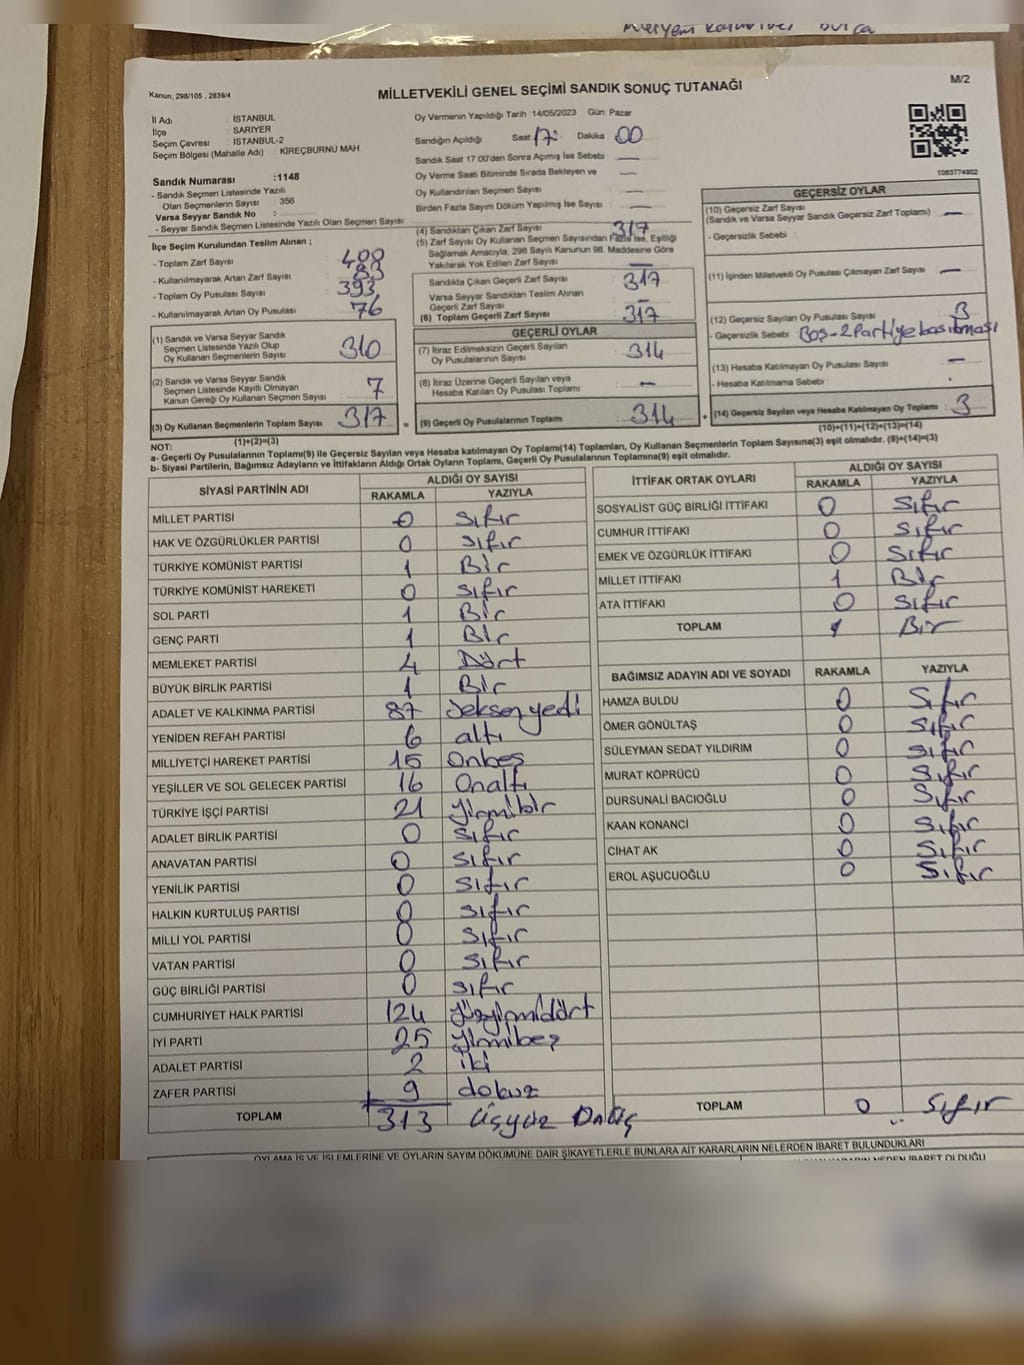 Meryem
Kanun, 298/105 , 2839/4
MİLLETVEKİLİ GENEL SEÇİMİ SANDIK SONUÇ TUTANAĞI
M/2
İl Adı : İSTANBUL
İlçe : SARIYER
Seçim Çevresi : İSTANBUL-2
Seçim Bölgesi (Mahalle Adı) : KİREÇBURNU MAH.
Oy Vermenin Yapıldığı Tarih 14/05/2023 Gün: Pazar
Sandığın Açıldığı Saat 17: Dakika 00
Sandık Saat 17:00'den Sonra Açılmış İse Sebebi : —
Oy Verme Saati Bitiminde Sırada Bekleyen ve : —
Oy Kullandırılan Seçmen Sayısı : —
Birden Fazla Sayım Döküm Yapılmış İse Sayısı : —
1083774802
Sandık Numarası :1148
- Sandık Seçmen Listesinde Yazılı
Olan Seçmenlerin Sayısı : 356
Varsa Seyyar Sandık No :
- Seyyar Sandık Seçmen Listesinde Yazılı Olan Seçmen Sayısı:
İlçe Seçim Kurulundan Teslim Alınan ;
- Toplam Zarf Sayısı : 400
- Kullanılmayarak Artan Zarf Sayısı : 83
- Toplam Oy Pusulası Sayısı : 393
- Kullanılmayarak Artan Oy Pusulası : 76
(1) Sandık ve Varsa Seyyar Sandık
Seçmen Listesinde Yazılı Olup
Oy Kullanan Seçmenlerin Sayısı : 310
(2) Sandık ve Varsa Seyyar Sandık
Seçmen Listesinde Kayıtlı Olmayan
Kanun Gereği Oy Kullanan Seçmen Sayısı : 7
(3) Oy Kullanan Seçmenlerin Toplam Sayısı : 317
(1)+(2)=(3)
(4) Sandıktan Çıkan Zarf Sayısı : 317
(5) Zarf Sayısı Oy Kullanan Seçmen Sayısından Fazla İse, Eşitliği
Sağlamak Amacıyla, 298 Sayılı Kanunun 98. Maddesine Göre
Yakılarak Yok Edilen Zarf Sayısı : —
Sandıkta Çıkan Geçerli Zarf Sayısı : 317
Varsa Seyyar Sandıktan Teslim Alınan
Geçerli Zarf Sayısı : —
(6) Toplam Geçerli Zarf Sayısı : 317
GEÇERLİ OYLAR
(7) İtiraz Edilmeksizin Geçerli Sayılan
Oy Pusulalarının Sayısı : 314
(8) İtiraz Üzerine Geçerli Sayılan veya
Hesaba Katılan Oy Pusulası Toplamı : —
= (9) Geçerli Oy Pusulalarının Toplamı : 314 +
GEÇERSİZ OYLAR
(10) Geçersiz Zarf Sayısı
(Sandık ve Varsa Seyyar Sandık Geçersiz Zarf Toplamı) : —
- Geçersizlik Sebebi :
(11) İçinden Milletvekili Oy Pusulası Çıkmayan Zarf Sayısı : —
(12) Geçersiz Sayılan Oy Pusulası Sayısı : 3
- Geçersizlik Sebebi : Boş - 2 Partiye basılması
(13) Hesaba Katılmayan Oy Pusulası Sayısı : —
- Hesaba Katılmama Sebebi :
(14) Geçersiz Sayılan veya Hesaba Katılmayan Oy Toplamı : 3
(10)+(11)+(12)+(13)=(14)
NOT:
a- Geçerli Oy Pusulalarının Toplamı(9) ile Geçersiz Sayılan veya Hesaba katılmayan Oy Toplamı(14) Toplamları, Oy Kullanan Seçmenlerin Toplam Sayısına(3) eşit olmalıdır. (9)+(14)=(3)
b- Siyasi Partilerin, Bağımsız Adayların ve İttifakların Aldığı Ortak Oyların Toplamı, Geçerli Oy Pusulalarının Toplamına(9) eşit olmalıdır.
SİYASİ PARTİNİN ADI ALDIĞI OY SAYISI
RAKAMLA YAZIYLA
MİLLET PARTİSİ 0 Sıfır
HAK VE ÖZGÜRLÜKLER PARTİSİ 0 Sıfır
TÜRKİYE KOMÜNİST PARTİSİ 1 Bir
TÜRKİYE KOMÜNİST HAREKETİ 0 Sıfır
SOL PARTİ 1 Bir
GENÇ PARTİ 1 Bir
MEMLEKET PARTİSİ 4 Dört
BÜYÜK BİRLİK PARTİSİ 1 Bir
ADALET VE KALKINMA PARTİSİ 87 Seksenyedi
YENİDEN REFAH PARTİSİ 6 altı
MİLLİYETÇİ HAREKET PARTİSİ 15 Onbeş
YEŞİLLER VE SOL GELECEK PARTİSİ 16 Onaltı
TÜRKİYE İŞÇİ PARTİSİ 21 Yirmibir
ADALET BİRLİK PARTİSİ 0 Sıfır
ANAVATAN PARTİSİ 0 Sıfır
YENİLİK PARTİSİ 0 Sıfır
HALKIN KURTULUŞ PARTİSİ 0 Sıfır
MİLLİ YOL PARTİSİ 0 Sıfır
VATAN PARTİSİ 0 Sıfır
GÜÇ BİRLİĞİ PARTİSİ 0 Sıfır
CUMHURİYET HALK PARTİSİ 124 Yüzyirmidört
İYİ PARTİ 25 Yirmibeş
ADALET PARTİSİ 2 iki
ZAFER PARTİSİ 9 dokuz
TOPLAM 313 Üçyüz Onüç
İTTİFAK ORTAK OYLARI ALDIĞI OY SAYISI
RAKAMLA YAZIYLA
SOSYALİST GÜÇ BİRLİĞİ İTTİFAKI 0 Sıfır
CUMHUR İTTİFAKI 0 Sıfır
EMEK VE ÖZGÜRLÜK İTTİFAKI 0 Sıfır
MİLLET İTTİFAKI 1 Bir
ATA İTTİFAKI 0 Sıfır
TOPLAM 1 Bir
BAĞIMSIZ ADAYIN ADI VE SOYADI RAKAMLA YAZIYLA
HAMZA BULDU 0 Sıfır
ÖMER GÖNÜLTAŞ 0 Sıfır
SÜLEYMAN SEDAT YILDIRIM 0 Sıfır
MURAT KÖPRÜCÜ 0 Sıfır
DURSUNALİ BACIOĞLU 0 Sıfır
KAAN KONANCİ 0 Sıfır
CİHAT AK 0 Sıfır
EROL AŞUCUOĞLU 0 Sıfır
TOPLAM 0 Sıfır
OYLAMA İŞ VE İŞLEMLERİNE VE OYLARIN SAYIM DÖKÜMÜNE DAİR ŞİKAYETLERLE BUNLARA AİT KARARLARIN NELERDEN İBARET BULUNDUKLARI